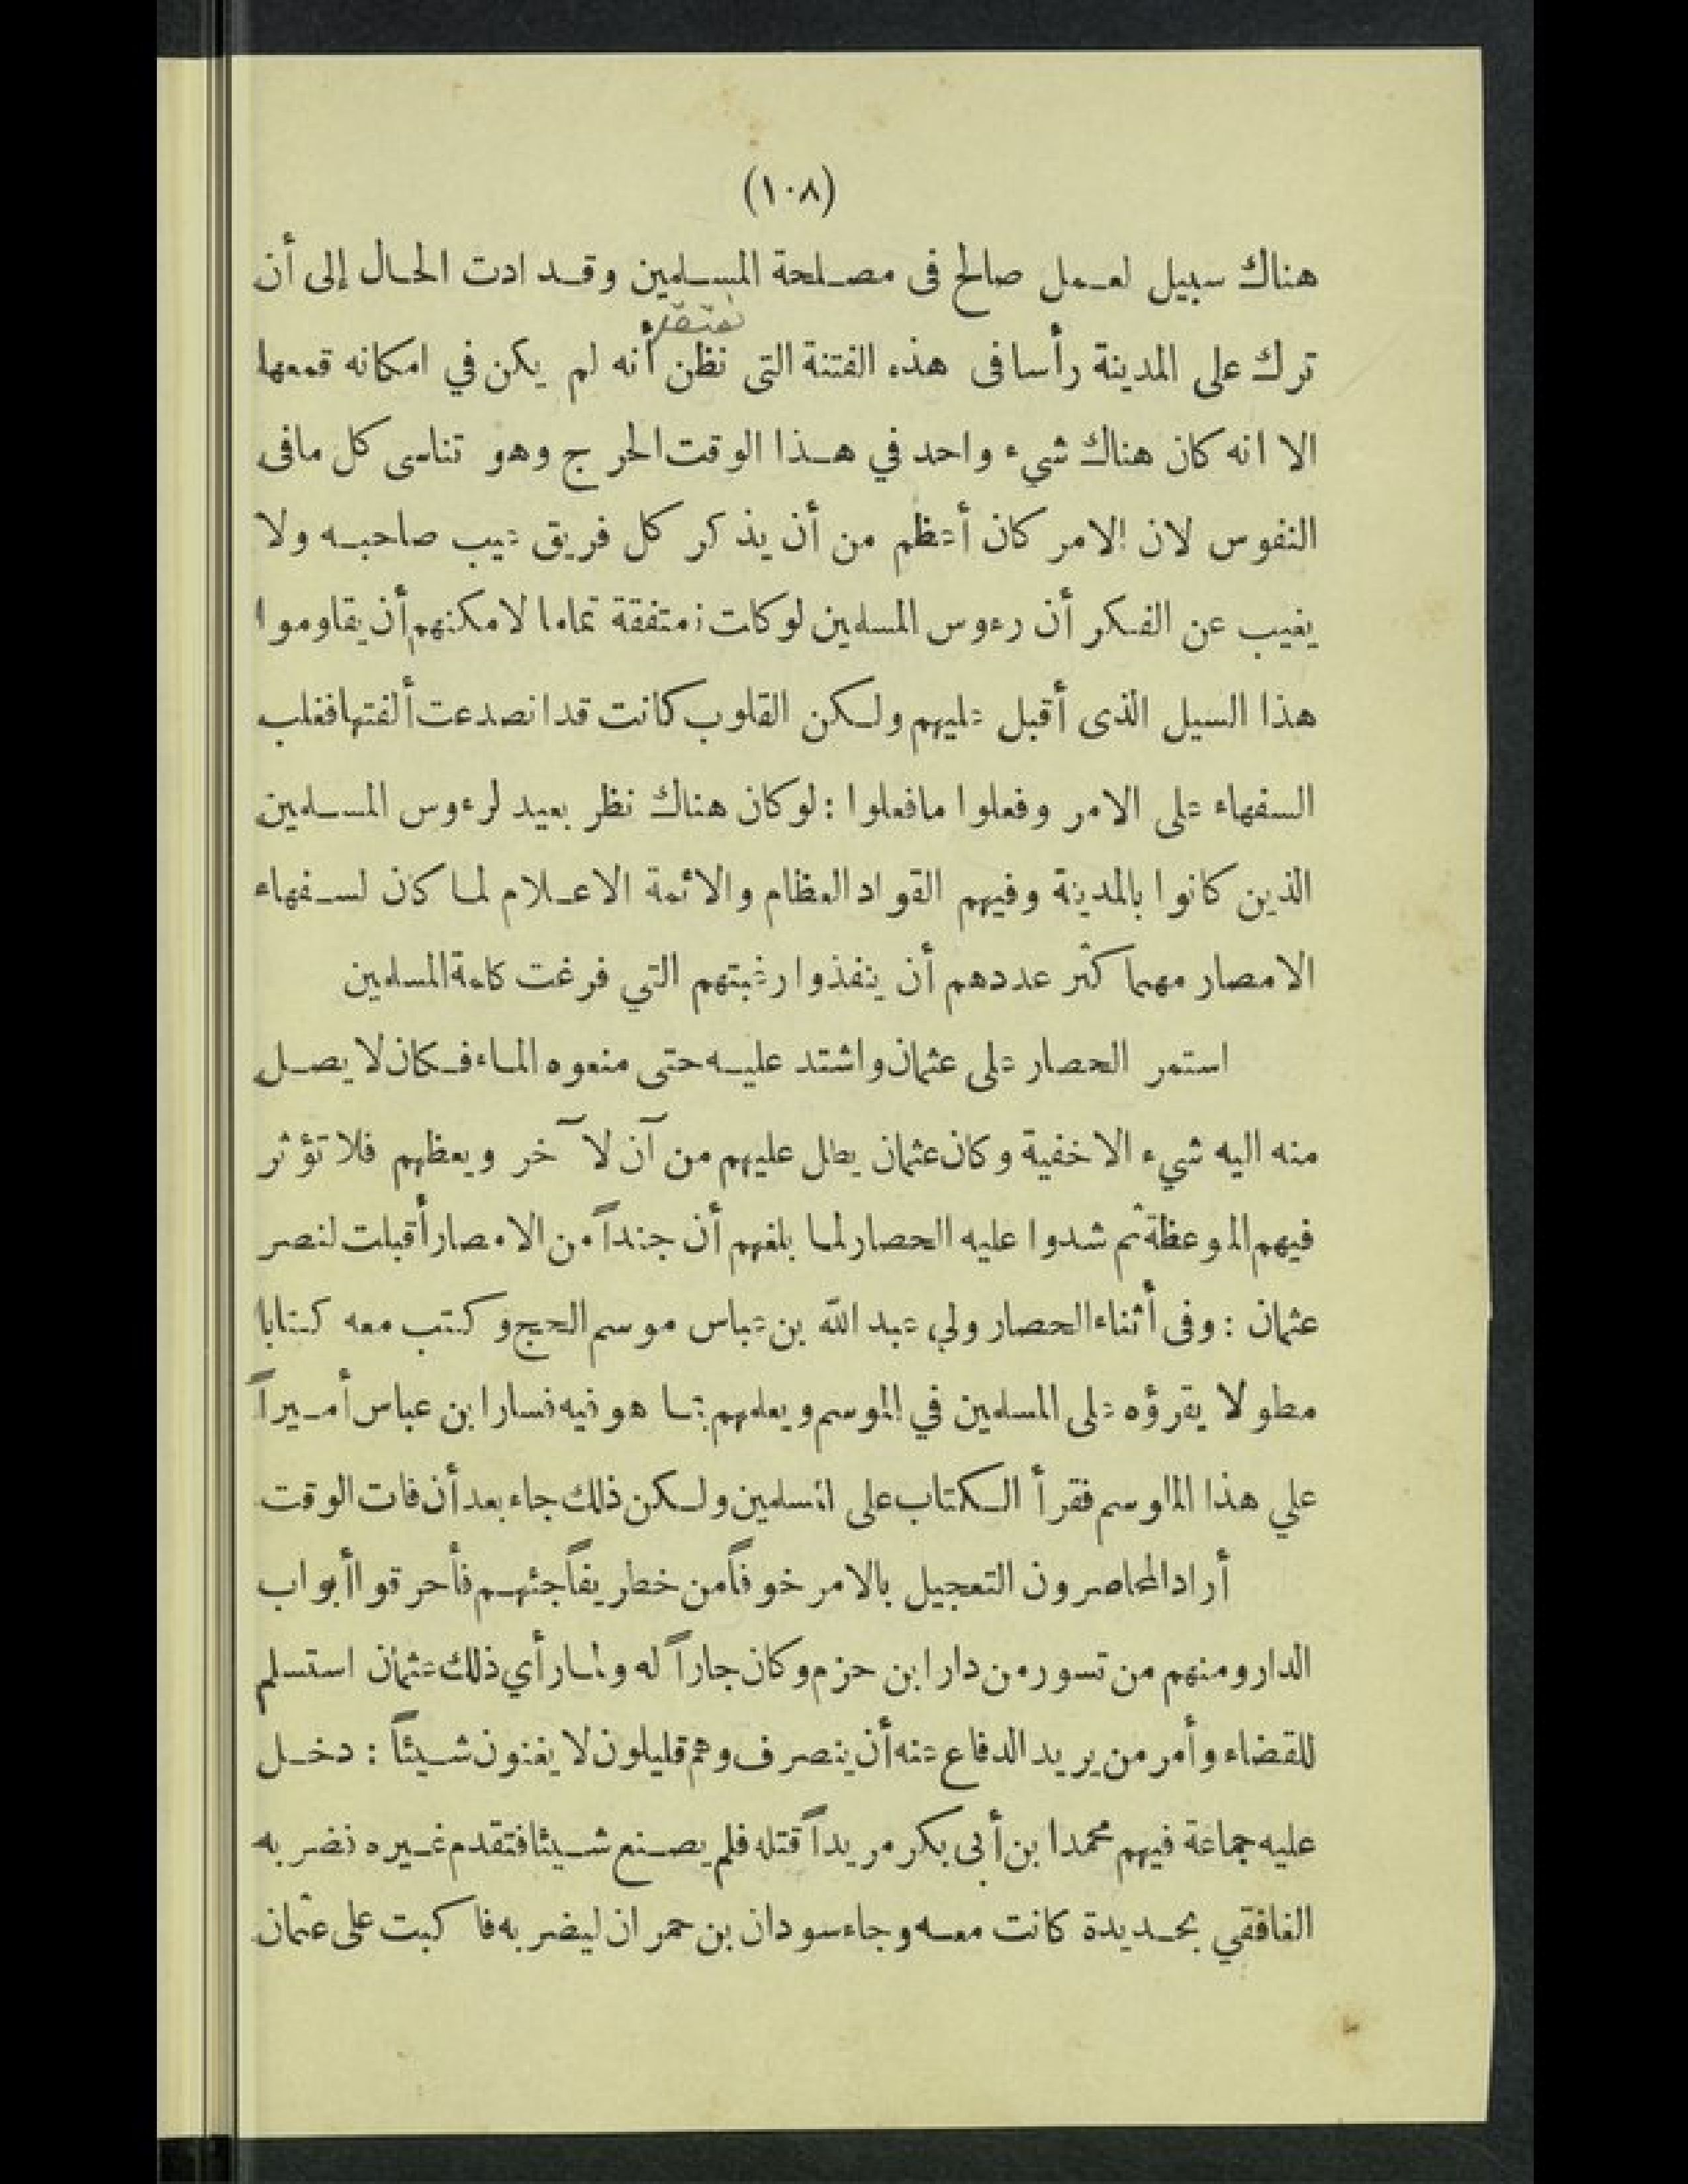 (١٠٨)
هناك سبيل لعمل صالح فى مصلحة المسلمين وقد ادت الحال إلى أن
نعتقد
ترك على المدينة رأسا فى هذه الفتنة التى نظن أنه لم يكن في امكانه قمعها
الا انه كان هناك شيء واحد في هذا الوقت الحرج وهو تناسى كل مافى
النفوس لان الامر كان أعظم من أن يذكر كل فريق عيب صاحبه ولا
يغيب عن الفكر أن رءوس المسلمين لو كات ن متفقة تماما لامكنهم أن يقاوموا
هذا السيل الذى أقبل عليهم ولكن القلوب كانت قد انصدعت ألفتها فغلب
السفهاء على الامر وفعلوا مافعلوا : لو كان هناك نظر بعيد لرءوس المسلمين
الذين كانوا بالمدينة وفيهم القواد العظام والائمة الاعلام لما كان لسفهاء
الامصار مهما كثر عددهم أن ينفذوا رغبتهم التي فرغت كلمة المسلمين
استمر الحصار على عثمان واشتد عليه حتى منعوه الماء فكان لا يصل
منه اليه شيء الا خفية وكان عثمان يطل عليهم من آن لآخر ويعظهم فلا تؤثر
فيهم الموعظة ثم شدوا عليه الحصار لما بلغهم أن جنداً من الامصار أقبلت لنصر
عثمان : وفى أثناء الحصار ولي عبد الله بن عباس موسم الحج وكتب معه كتابا
مطولا يقرؤه على المسلمين في الموسم ويعلمهم بما هو فيه فسار ابن عباس أميراً
علي هذا الماوسم فقرأ الكتاب على المسلمين ولكن ذلك جاء بعد أن فات الوقت
أراد المحاصرون التعجيل بالامر خوفاً من خطر يفاجئهم فأحرقوا أبواب
الدار ومنهم من تسور من دار ابن حزم وكان جاراً له ولما رأي ذلك عثمان استسلم
للقضاء وأمر من يريد الدفاع عنه أن ينصرف وهم قليلون لا يغنون شيئاً : دخل
عليه جماعة فيهم محمدا بن أبى بكر مريداً قتله فلم يصنع شيئا فتقدم غيره فضربه
الغافقي بحديدة كانت معه وجاء سودان بن حمران ليضربه فاكبت على عثمان